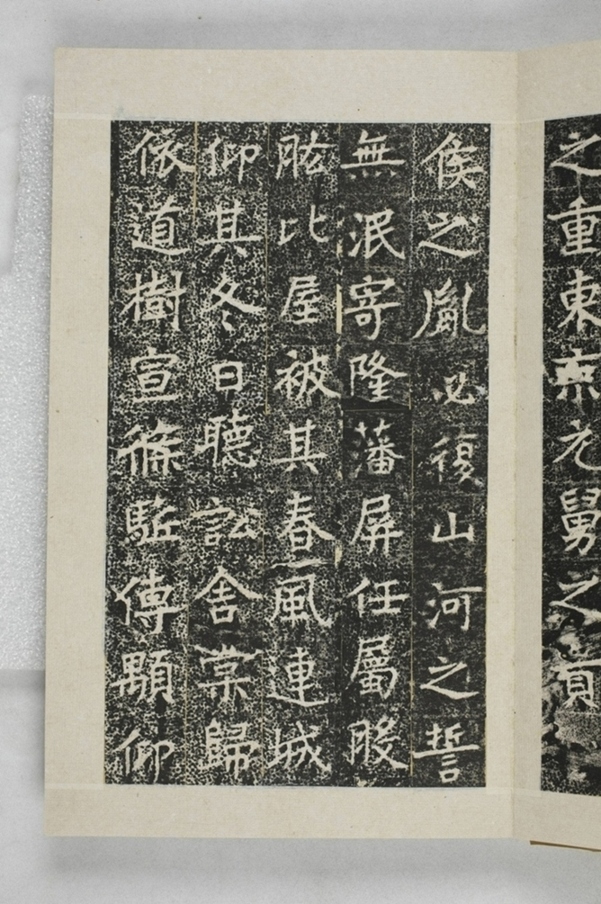 之重東京元舅之
侯之胤必復山河之誓
無泯寄隆藩屏任屬股
肱比屋被其春風連城
仰其冬日聽訟舍棠歸
依道樹宣條駐傳顯仰